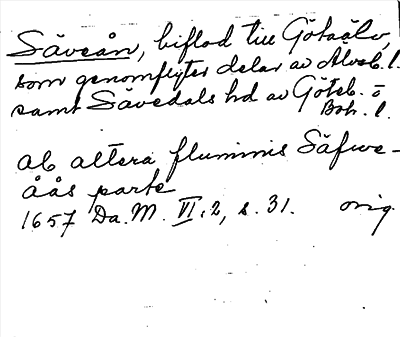 Säveån, biflod till Götaälv,
som genomflyter delar av Älvsb. l.
samt Sävedals hd av Göteb. o
Boh. l.
ab altera fluminis Säfwe-
åås parte
1657 Da. M. VI:2, s. 31. orig.